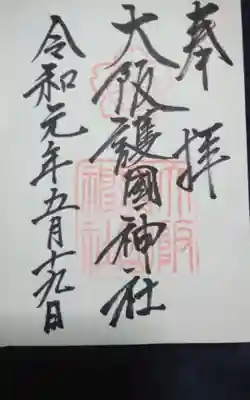 奉拝
大阪護國神社
令和元年五月十九日